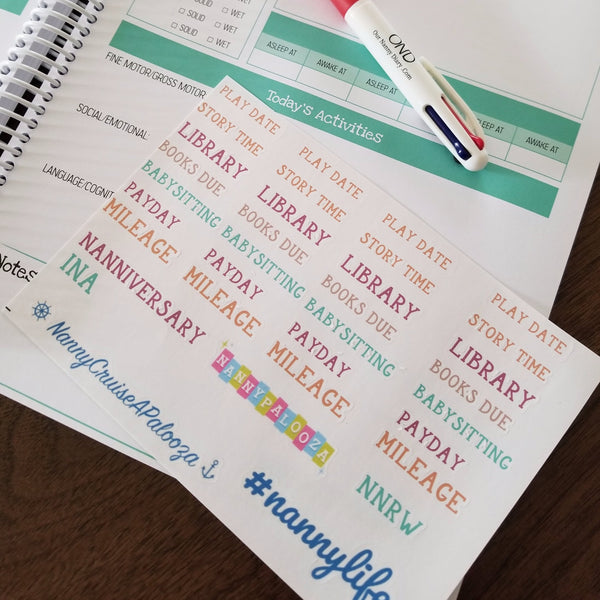 SOLID WET
SOLID WET
SOLID WET
FINE MOTOR/GROSS MOTOR
SOCIAL/EMOTIONAL:
Notes
ASLEEP AT AWAKE AT AWAKE AT
Today's Activities
OND
Our Nanny Diary .Com
PLAY DATE
STORY TIME
LIBRARY
BOOKS DUE
BABYSITTING
PAYDAY
MILEAGE
NANNIVERSARY
INA
NannyCruiseAPalooza
PLAY DATE
STORY TIME
LIBRARY
BOOKS DUE
BABYSITTING
PAYDAY
MILEAGE
NANNYPALOOZA
#nannylife
PLAY DATE
STORY TIME
LIBRARY
BOOKS DUE
BABYSITTING
PAYDAY
MILEAGE
PLAY DATE
STORY TIME
LIBRARY
BOOKS DUE
BABYSITTING
PAYDAY
MILEAGE
NNRW